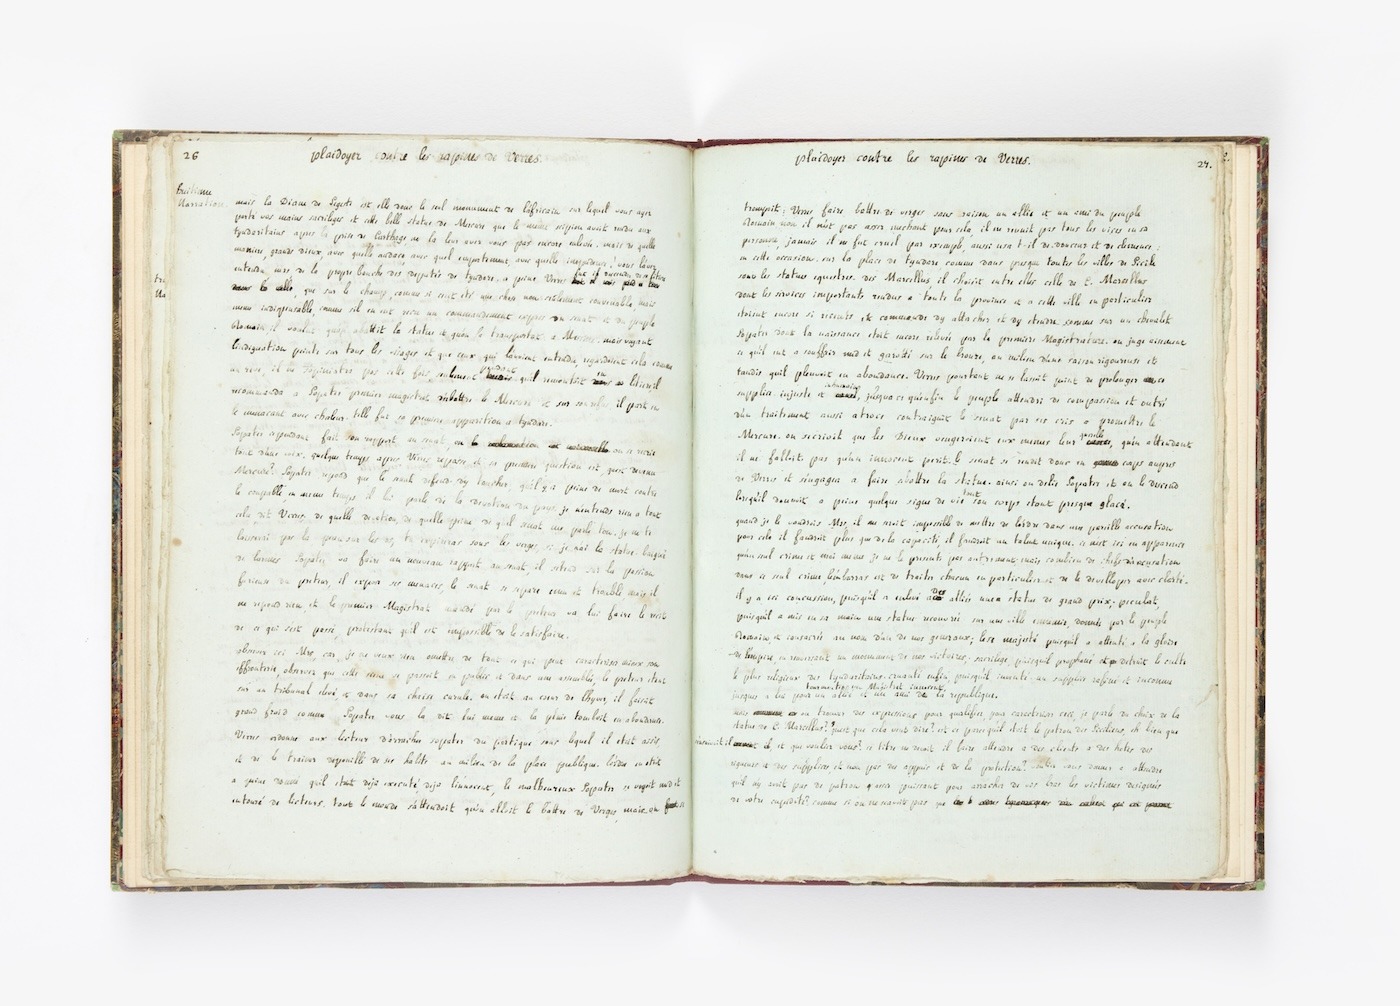 26
plaidoyer contre les rapines de Verres.
Narration
mais la Diane de Segeste est elle donc le seul monument de l'africain sur lequel vous ayez
porté vos mains sacrileges et cette belle statue de Mercure que le même scipion avoit rendu aux
tyndaritains apres la prise de Carthage ne la leur avez vous pas encore enlevée. mais de quelle
maniere grands dieux, avec quelle audace avec quel emportement, avec quelle impudence! vous l'avez
entendu, mrs de la propre bouche des deputés de tyndare. a peine Verres fut il
que sur le champ, comme si c'eut été une chose non seulement convenable, mais
meme indispensable, comme s'il en eut recu un commandement exprès du senat et du peuple
Romain, il voulut qu'on abattit la statue et qu'on la transportat a Messine. mais voyant
l'indignation peinte sur tous les visages et que ceux qui l'avoient entendu, regardoient cela comme
un reve, il ne
recommanda a Sopater premier magistrat d'abattre le Mercure et sur son refus il part en
le menacant avec chaleur. telle fut sa premiere apparition a tyndare.
Sopater cependant fait son rapport au senat, on se recrie
tout d'une voix. quelque temps apres Verres repasse et sa premiere question est, quoi donc
Mercure? Sopater repond que le senat defend d'y toucher, qu'il y a peine de mort contre
le coupable, en meme temps il lui parle de la devotion du pays. je n'entends rien a tout
cela dit Verres, de quelle devotion, de quelle peine de quel senat me parle tu. je ne te
laisserai pas la je n'ai la statue. baigné
de larmes Sopater va faire un nouveau rapport au senat, il s'etend sur la passion
furieuse du preteur, il expose ses menaces, le senat se separe emu et troublé mais il
ne repond rien et le premier Magistrat mandé par le preteur va lui faire le recit
de ce qui s'est passé, protestant qu'il est impossible de le satisfaire.
observez ici Mrs, car je ne veux rien omettre de tout ce qui peut caracteriser mieux son
effronterie, observez que cette scene se passoit en public et dans une assemblée, le preteur etant
sur un tribunal elevé, et dans sa chaise curule. on etoit au coeur de l'hyver, il faisoit
grand froid comme Sopater vous l'a dit lui meme et la pluie tomboit en abondance.
Verres ordonne aux licteurs d'arracher sopater du portique sous lequel il etoit assis
et de le trainer depouillé de ses habits au milieu de la place publique. l'ordre en etoit
a peine donné qu'il etoit deja executé, deja l'innocent, le malheureux Sopater se voyoit nud et
entouré de licteurs. tout le monde s'attendoit qu'on alloit le battre de Verges, mais on
27.
plaidoyer contre les rapines de Verres.
trompoit: Verres faire battre de verges sans raison un allié et un ami du peuple
Romain non il n'est pas assez mechant pour cela, il ne reunit pas tous les vices en sa
personne, jamais il ne fut cruel par exemple, aussi usa t-il de douceur et de clemence
en cette occasion. sur la place de tyndare comme dans presque toutes les villes de Sicile
sont les statues equestres des Marcellus, il choisit entre elles celle de C. Marcellus
dont les services importants rendus a toute la province et a cette ville en particulier
etoient encore si recents et commanda d'y attacher et d'y etendre comme sur un chevalet
Sopater dont la naissance etoit encore relevée par la premiere Magistrature. on juge aisement
ce qu'il eut a souffrir nud et garotté sur le bronze, au milieu d'une saison rigoureuse et
tandis qu'il pleuvoit en abondance. Verres pourtant ne se lassoit point de prolonger ce
supplice injuste et inhumain, jusqu'a ce qu'enfin le peuple attendri de compassion et outré
d'un traitement aussi atroce contraignit le senat par ses cris a promettre le
Mercure. on s'ecrioit que les Dieux vengeroient eux memes leur querelle, qu'en attendant
il ne falloit pas qu'un innocent perit. le senat se rendit donc en corps aupres
de Verres et s'engagea a faire abattre la statue. ainsi on delia Sopater et on le descend
lorsqu'il donnoit a peine quelque signe de vie tout son corps etant presque glacé.
quand je le voudrois Mrs, il me seroit impossible de mettre de l'ordre dans une pareille accusation
pour cela il faudroit plus que de la capacité il faudroit un talent unique. ce n'est ici en apparence
qu'un seul crime et moi meme je ne le presente pas autrement mais combien de chefs d'accusation
dans ce seul crime l'embarras est de traiter chacun en particulier et de le developper avec clarté.
il y a ici concussion, puisqu'il a enlevé a des alliés une statue de grand prix. peculat,
puisqu'il a mis en sa main une statue recouvrée sur une ville ennemie, donnée par le peuple
Romain et consacrée au nom d'un de nos generaux, leze majesté puisqu'il a attenté a la gloire
de l'empire, en renversant un monument de nos victoires; sacrilege, puisqu'il prophané et detruit le culte
le plus religieux des tyndaritains. cruauté enfin, puisqu'il inventé un supplice rafiné et inconnu
jusques a lui pour tourmenter un Magistrat innocent, un allié et un ami de la republique.
mais ou trouver des expressions pour qualifier, pour caracteriser ceci, je parle du choix de la
statue de C. Marcellus? Quest que cela veut dire? est ce parcequ'il etoit le patron des Siciliens, eh bien que
et que voulez vous? ce titre en devoit il faire attendre a des clients a des hotes des
rigueurs et des supplices, et non pas des appuis et de la protection?
qu'il n'y avoit pas de patron assez puissant pour arracher de vos bras les victimes designées
de votre cupidité? comme si on ne savoit pas que